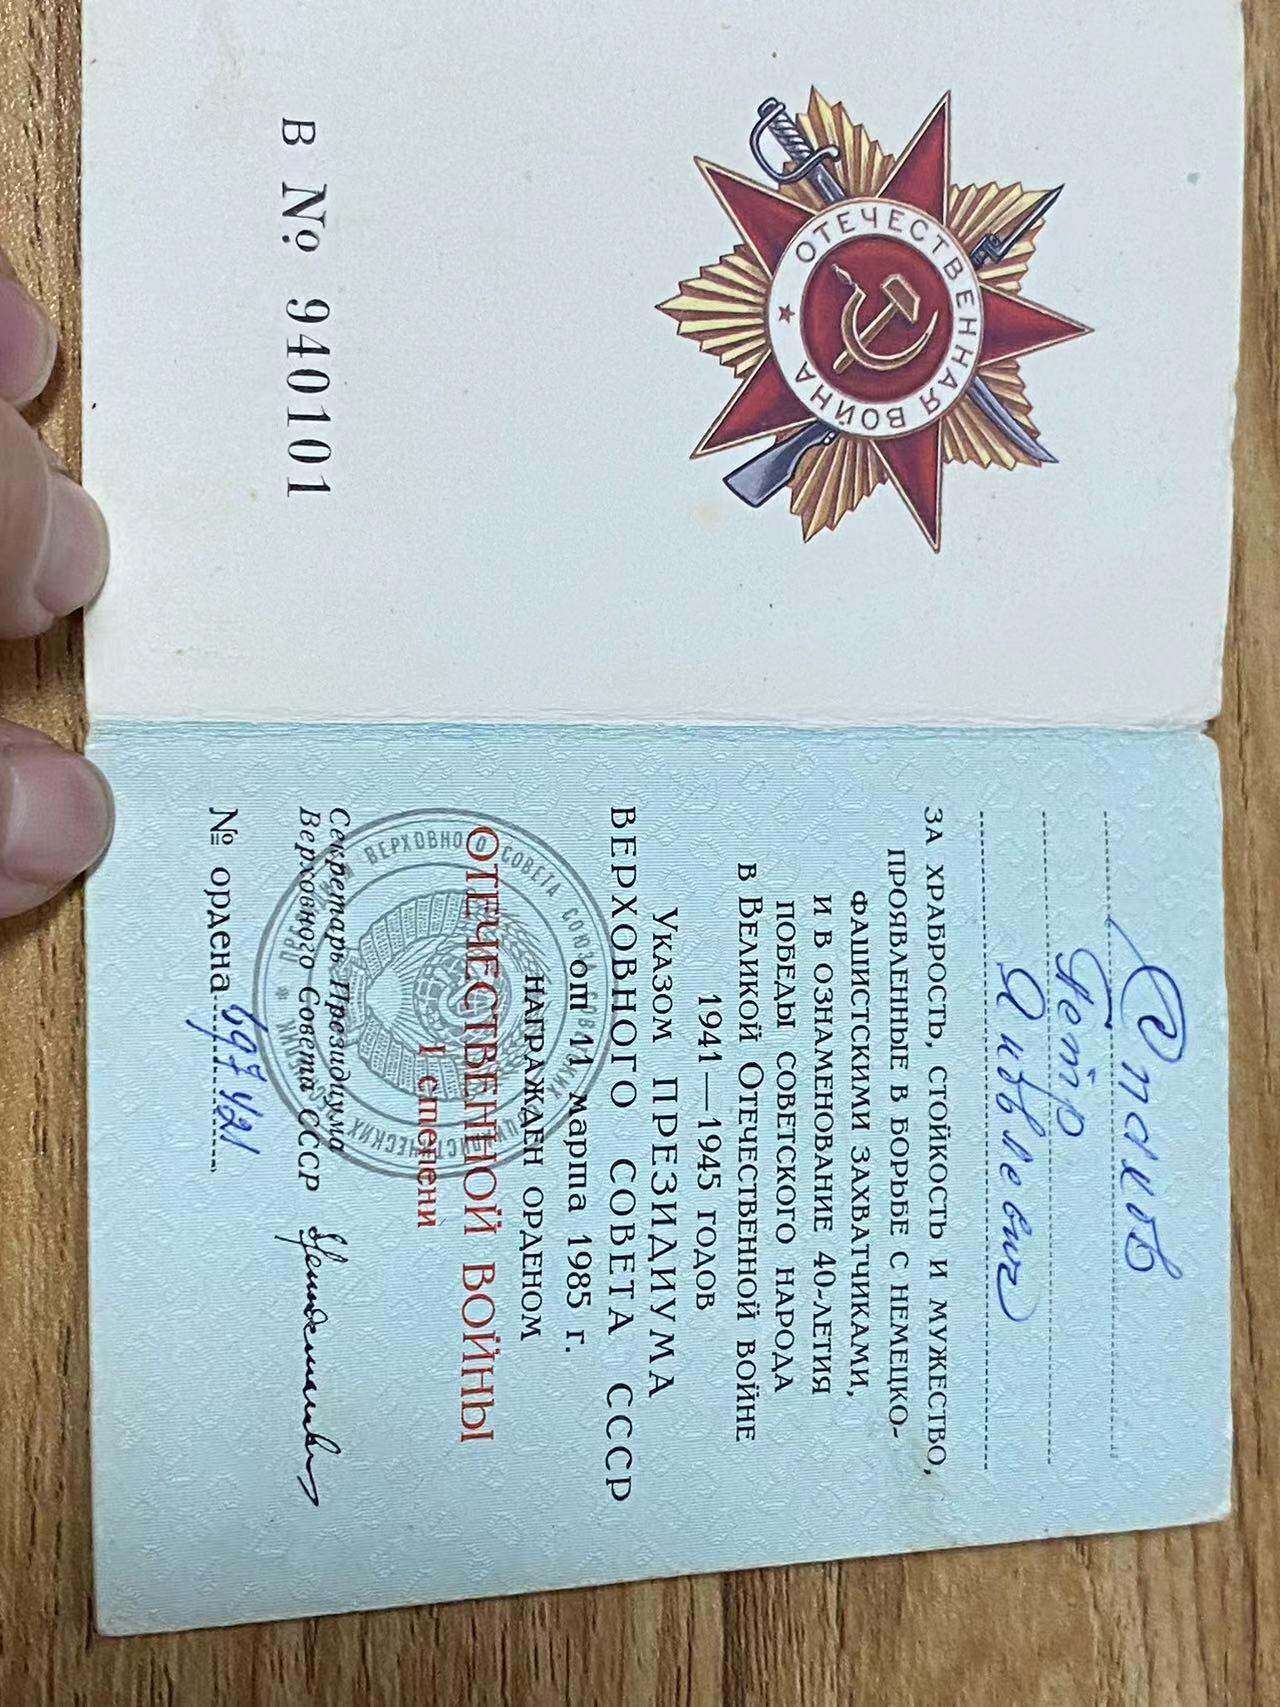 ОТЕЧЕСТВЕННАЯ ВОЙНА
В № 940101
Спахов
Петр
Яковлевич
ЗА ХРАБРОСТЬ, СТОЙКОСТЬ И МУЖЕСТВО,
ПРОЯВЛЕННЫЕ В БОРЬБЕ С НЕМЕЦКО-
ФАШИСТСКИМИ ЗАХВАТЧИКАМИ,
И В ОЗНАМЕНОВАНИЕ 40-ЛЕТИЯ
ПОБЕДЫ СОВЕТСКОГО НАРОДА
В ВЕЛИКОЙ ОТЕЧЕСТВЕННОЙ ВОЙНЕ
1941—1945 ГОДОВ
УКАЗОМ ПРЕЗИДИУМА
ВЕРХОВНОГО СОВЕТА СССР
от 11 марта 1985 г.
НАГРАЖДЕН ОРДЕНОМ
ОТЕЧЕСТВЕННОЙ ВОЙНЫ
I степени
Секретарь Президиума
Верховного Совета СССР
№ ордена 697421